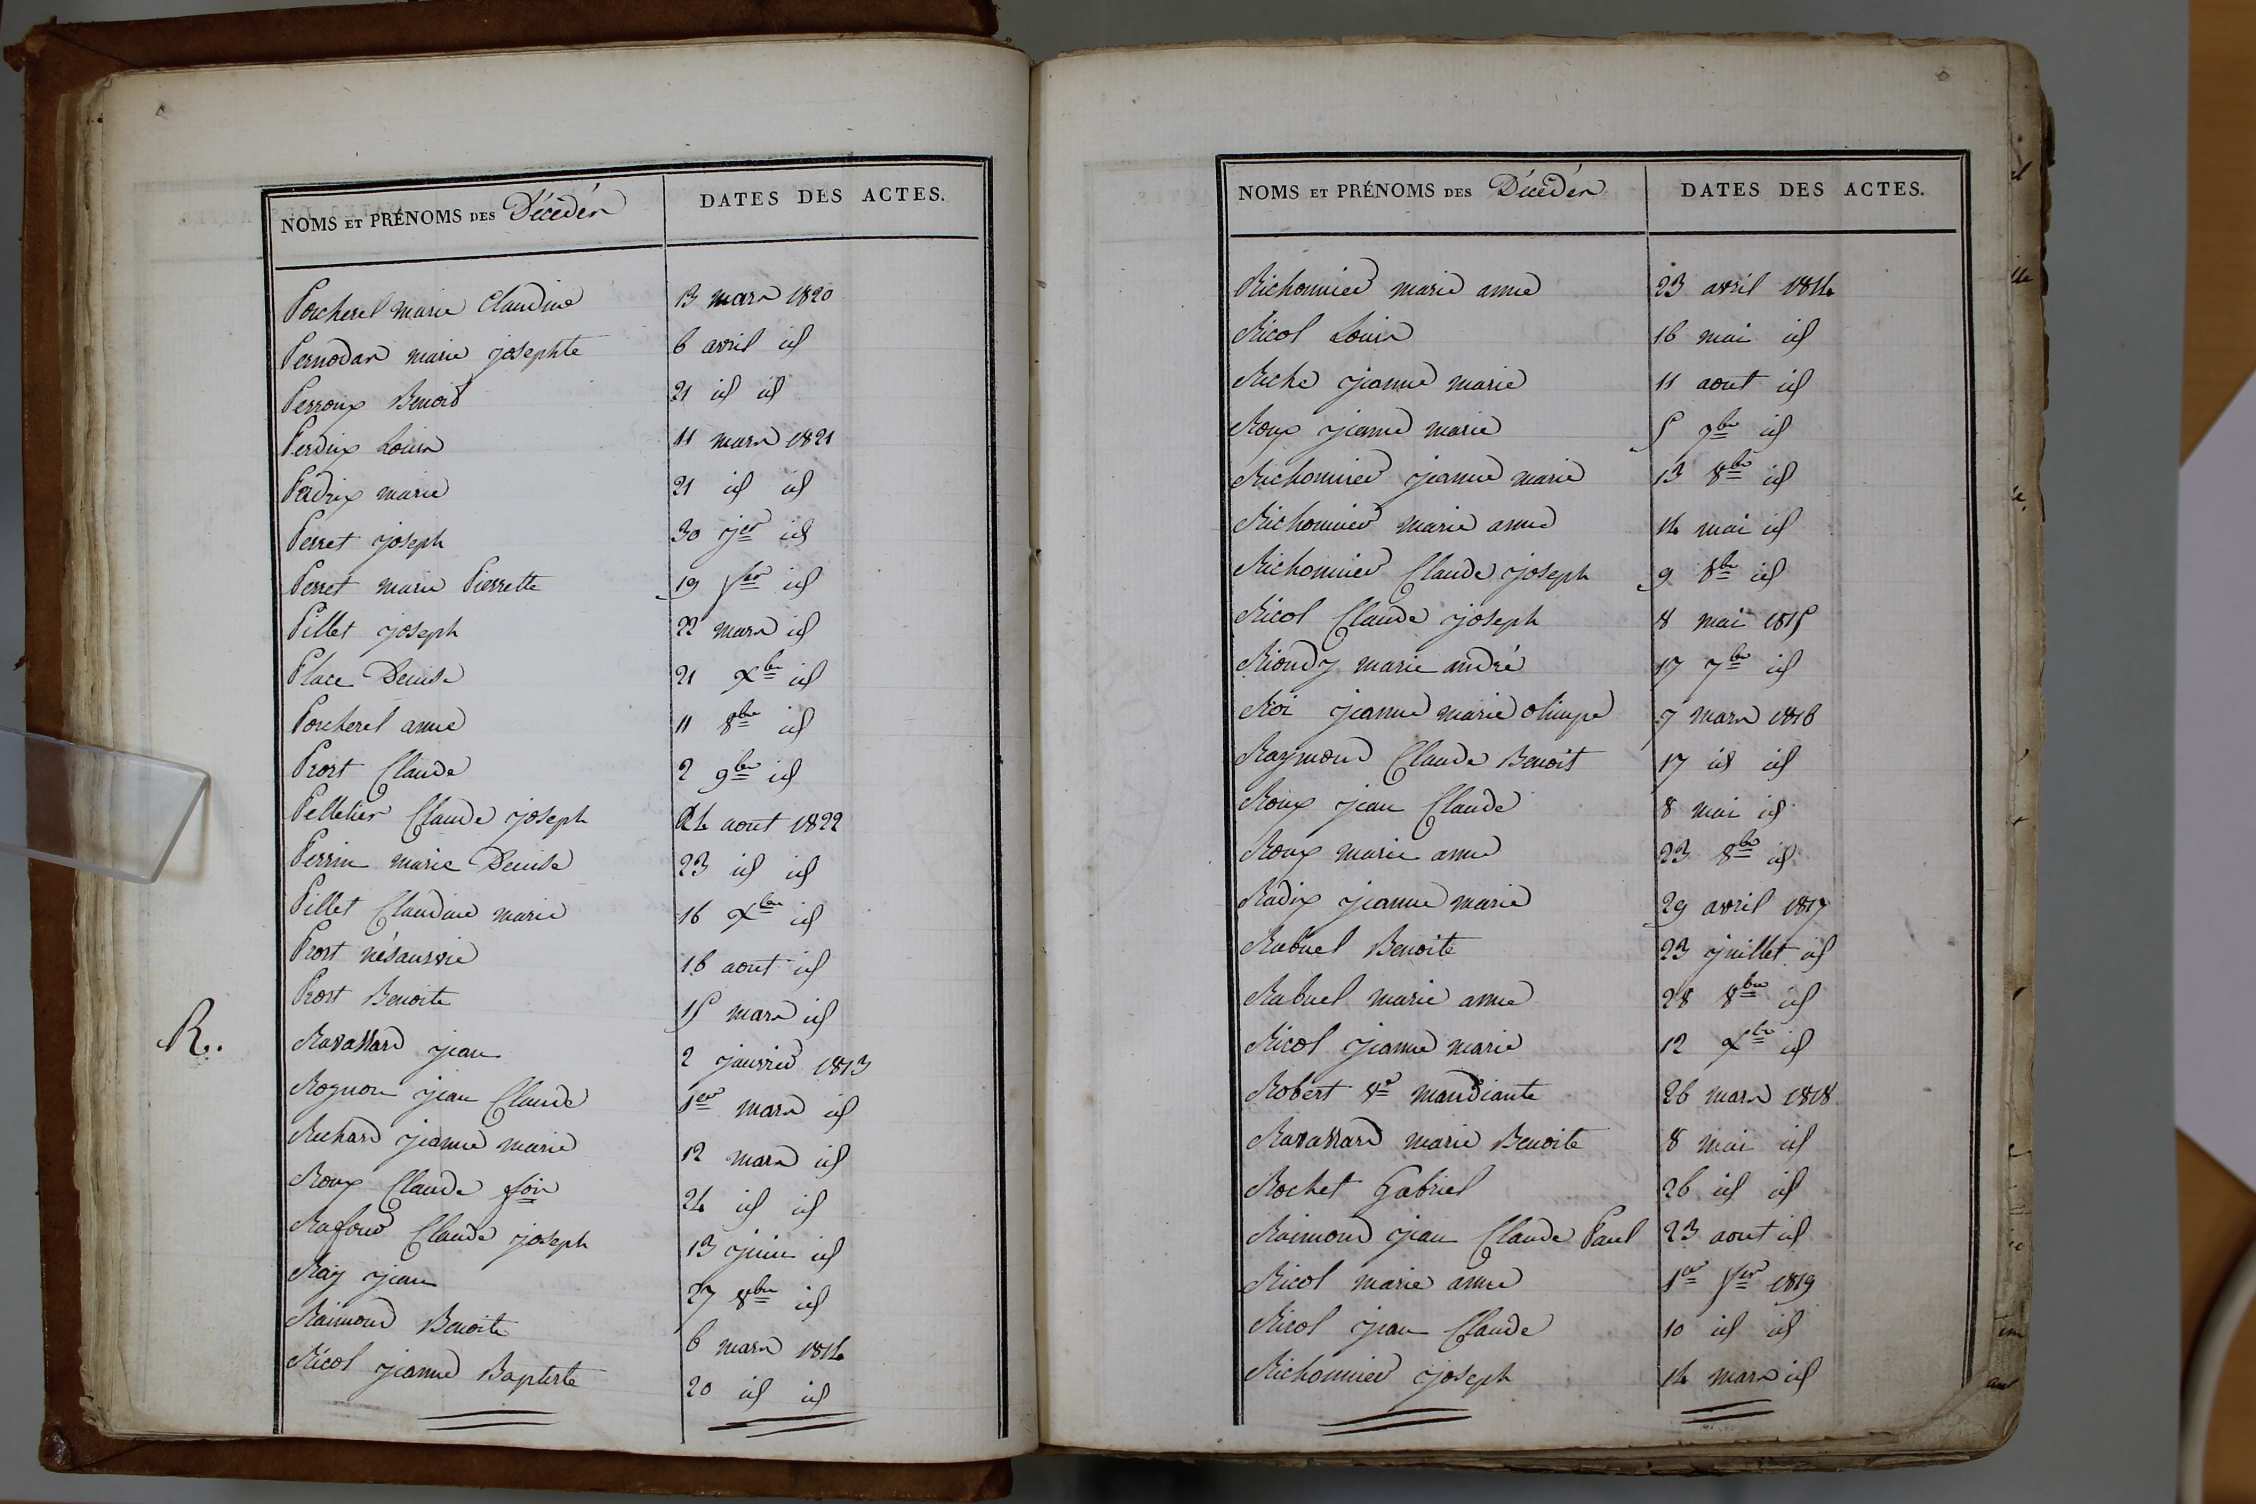 NOMS ET PRÉNOMS DES Décédés DATES DES ACTES.
Porcherel marie Claudine 13 mars 1820
Pernodas marie josephte 6 avril id
Perroux Benoit 21 id id
Perdrix Louis 11 mars 1821
Perdrix marie 21 id id
Perret joseph 30 jer id
Perret marie Pierrette 19 fer id
Pillet joseph 22 mars id
Place Denise 21 Xbre id
Porcherel anne 11 8bre id
Prost Claude 2 9bre id
Pelletier Claude joseph 24 aout 1822
Perrin marie Denise 23 id id
Pillet Claudine marie 16 Xbre id
Prost né sans vie 16 aout id
Prost Benoite 15 mars id
R.
Ravassard jean 2 janvier 1813
Rognon jean Claude 1er mars id
Richard jeanne marie 12 mars id
Roux Claude fois 24 id id
Raffour Claude joseph 13 juin id
Ray jean 27 8bre id
Raimond Benoite 6 mars 1814
Ricol jeanne Baptiste 20 id id
NOMS ET PRÉNOMS DES Décédés DATES DES ACTES.
Richonnier marie anne 23 avril 1814
Ricol Louis 16 mai id
Riche jeanne marie 11 aout id
Roux jeanne marie 5 7bre id
Richonnier jeanne marie 13 8bre id
Richonnier marie anne 14 mai id
Richonnier Claude joseph 9 8bre id
Ricol Claude joseph 8 mai 1815
Rioudy marie andré 17 7bre id
Roi jeanne marie olimpe 7 mars 1816
Raymond Claude Benoit 17 id id
Roux jean Claude 8 mai id
Roux marie anne 23 8bre id
Radix jeanne marie 29 avril 1817
Rabuel Benoite 23 juillet id
Rabuel marie anne 28 8bre id
Ricol jeanne marie 12 Xbre id
Robert Ve mandiante 26 mars 1818
Ravassard marie Benoite 8 mai id
Rochet Gabriel 26 id id
Raimond jean Claude Paul 23 aout id
Ricol marie anne 1er fer 1819
Ricol jean Claude 10 id id
Richonnier joseph 14 mars id